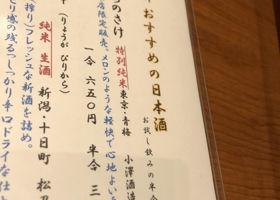 おすすめの日本酒
お試し飲みの半合
小澤酒造
特別純米 東京・青梅
店限定販売。メロンのような軽快で心地よい
一合 六五〇円 半合 三
(りょうが びりから)
純米 生酒 新潟・十日町 松乃
搾り)フレッシュな新酒を詰め。
とり感の残るっしっかり辛口ドライな仕